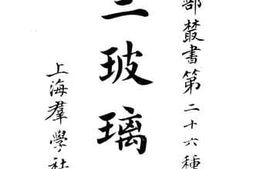 部叢書第二十六種
玻璃
上海羣學社